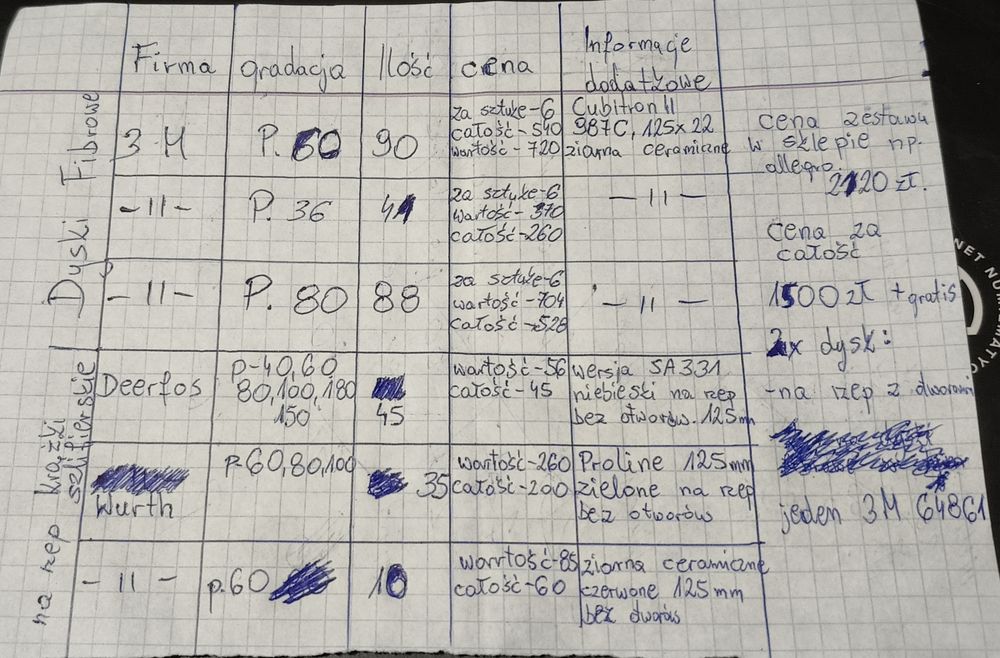 Firma gradacja Ilość cena Informacje dodatkowe
Dyski Fibrowe
3M P. 60 90
za sztukę-6
całość-540
wartość-720
Cubitron II
987C, 125x22
ziarna ceramiczne
-11- P. 36 41
za sztukę-6
wartość-370
całość-260
- 11 -
-11- P. 80 88
za sztukę-6
wartość-704
całość-528
- 11 -
na rzep krążki
szlifierskie
Deerfos
p-40,60
80,100,180
150
45
wartość-56
całość-45
wersja SA331
niebieski na rzep
bez otworów. 125mm
Wurth
p-60,80,100
35
wartość-260
całość-200
Proline 125mm
zielone na rzep
bez otworów
-11- p.60 10
warrtość-85
całość-60
ziarna ceramiczne
czerwone 125mm
bez otworów
cena zestawu
w sklepie np.
allegro
2120 zł.
cena za
całość
1500 zł + gratis
2x dysk:
-na rzep z otworami
jeden 3M 64861